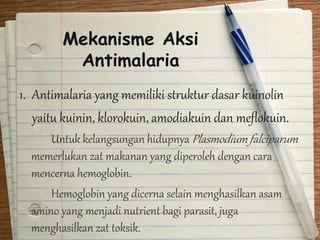 Mekanisme Aksi
Antimalaria
1. Antimalaria yang memiliki struktur dasar kuinolin
yaitu kuinin, klorokuin, amodiakuin dan meflokuin.
Untuk kelangsungan hidupnya Plasmodium falciparum
memerlukan zat makanan yang diperoleh dengan cara
mencerna hemoglobin.
Hemoglobin yang dicerna selain menghasilkan asam
amino yang menjadi nutrient bagi parasit, juga
menghasilkan zat toksik.